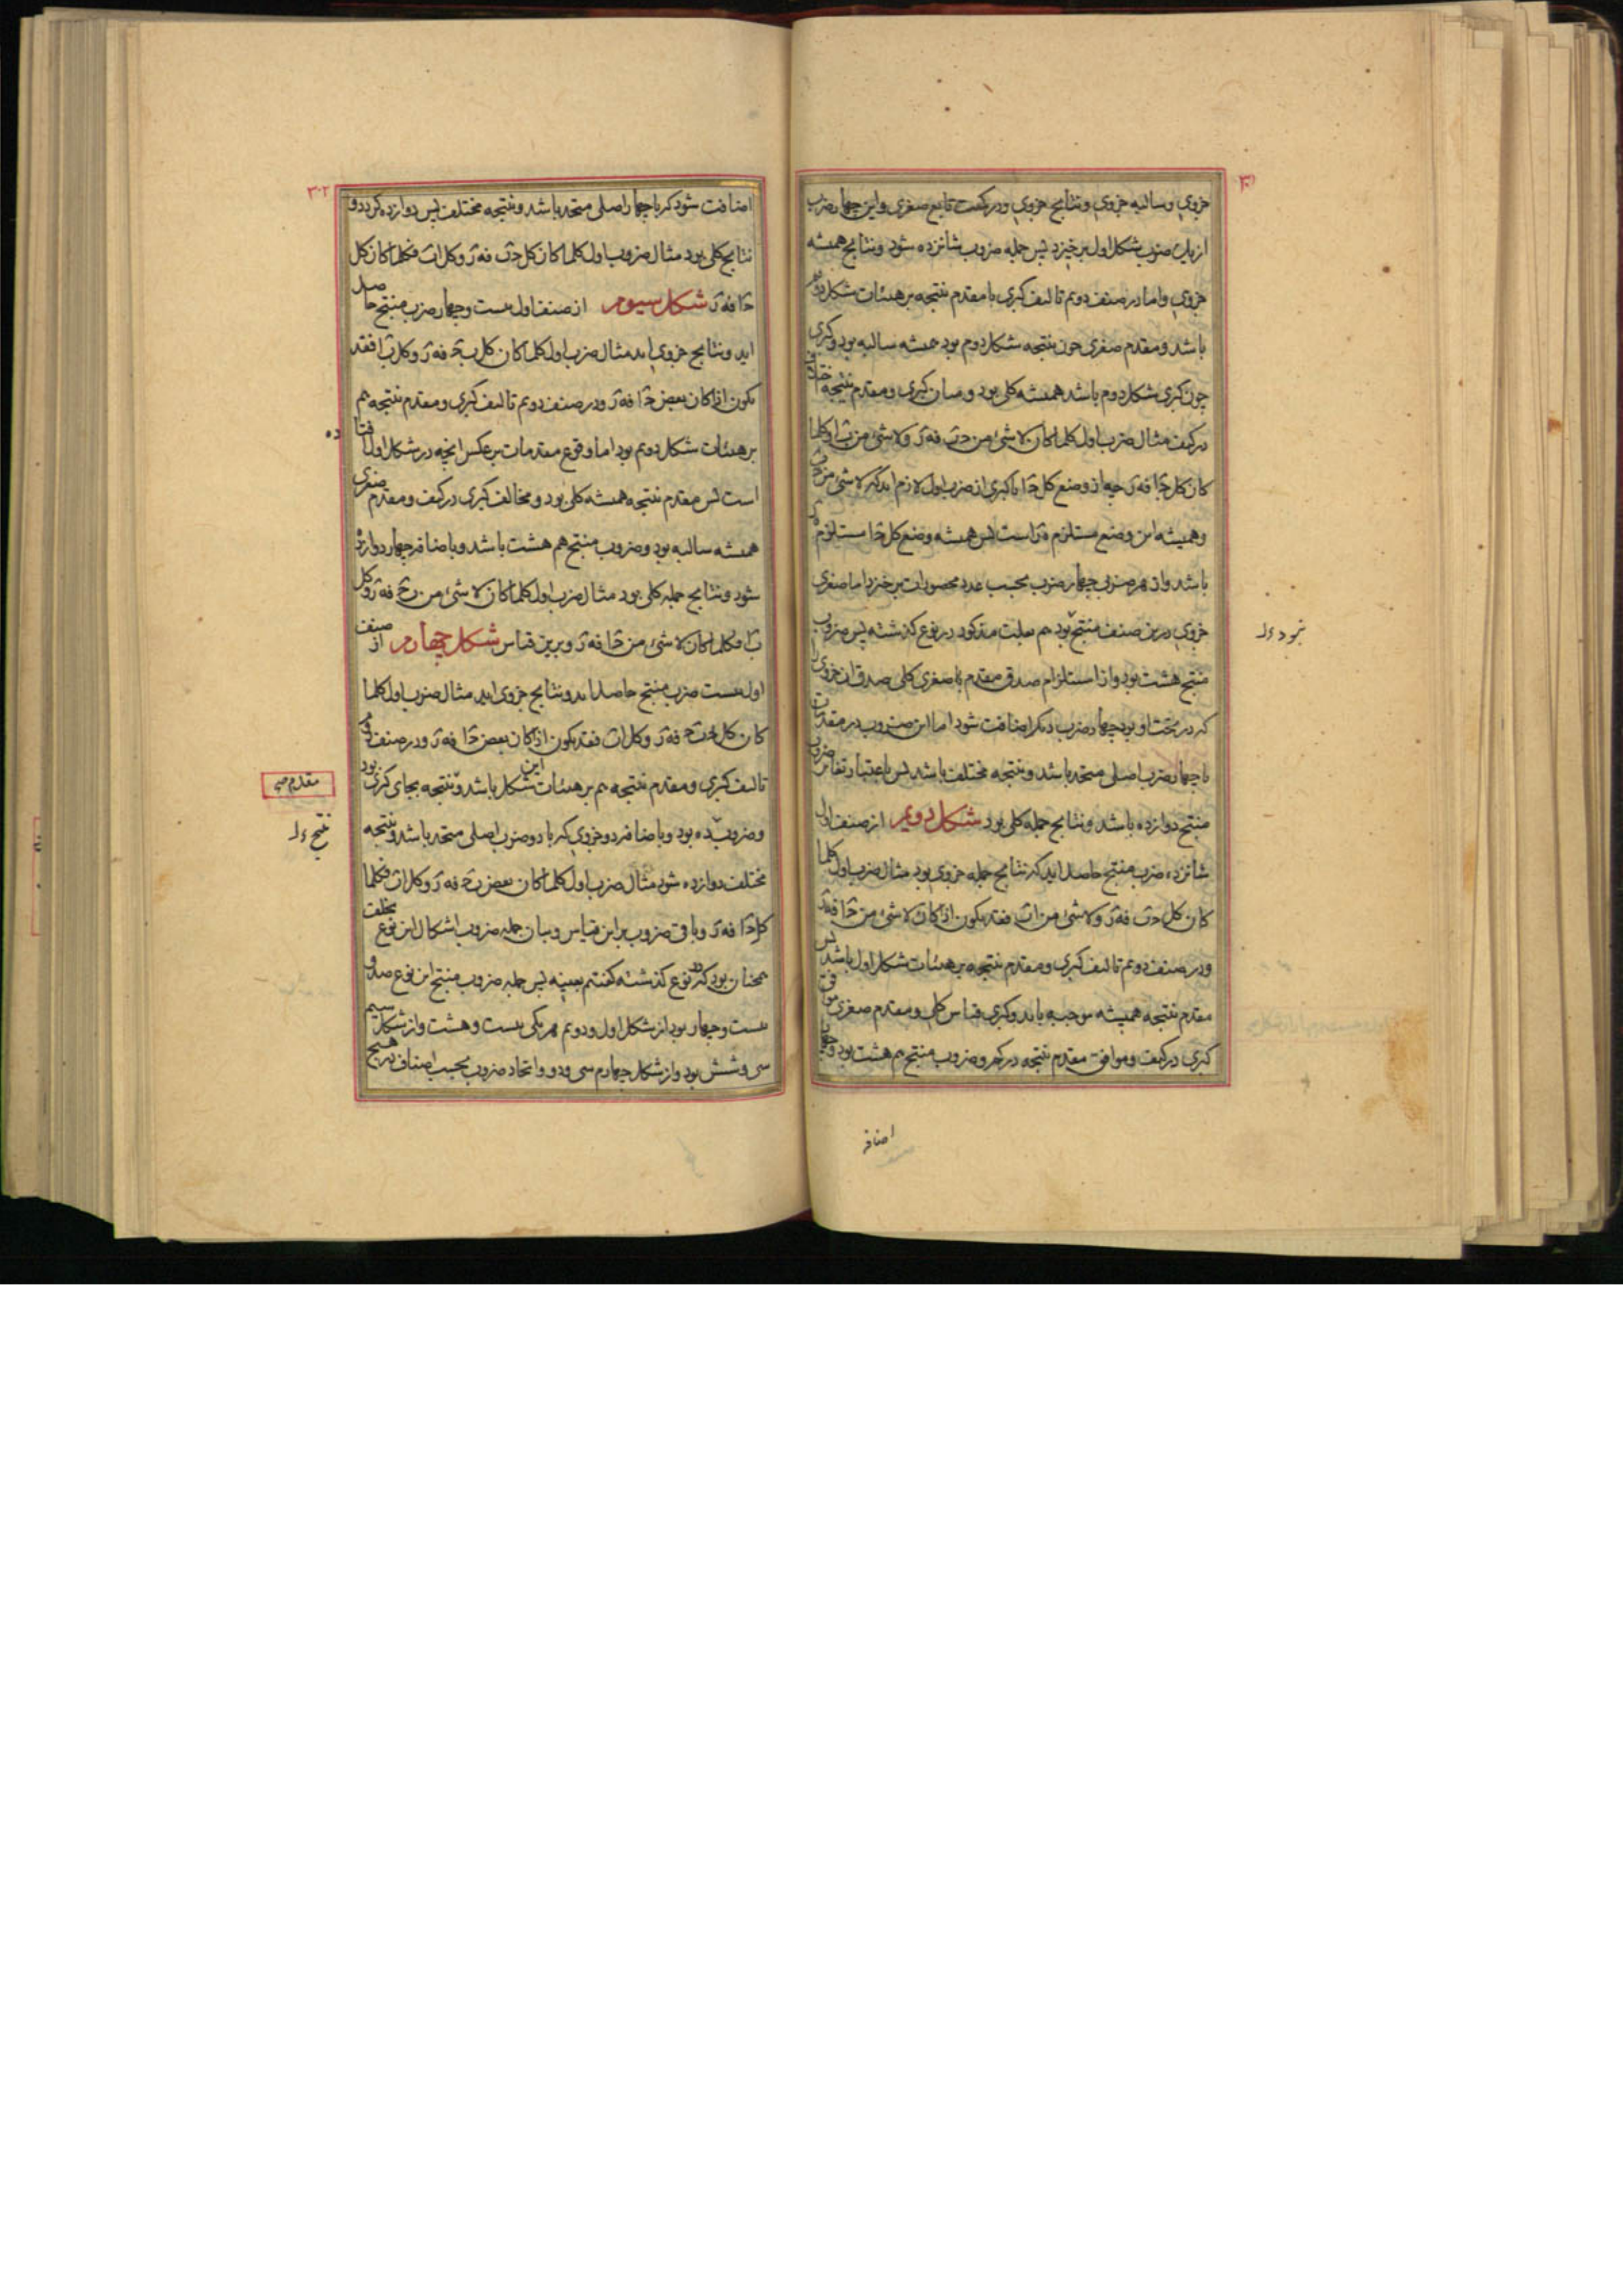 جزوی وسالبه جزوی ونتایج جزوی ودر کیفیت تابع صغری واین چهار ضرب
از یک ضرب شکل اول برخیزد پس جمله ضروب شانزده شود ونتایج همیشه
جزوی واما در صنف دویم تالیف کبری با مقدم نتیجه بر هیئات شکل دوم
باشد ومقدم صغری چون نتیجه شکل دوم بود همیشه سالبه بود وکبری
چون کبری شکل دوم باشد همیشه کلی بود ومیان کبری ومقدم نتیجه اختلاف
در کیف مثال ضرب اول کلما کان لا شیء من ج ب فه ز ولا شیء من ب ا وکلما
کان کل ج ا فه ز چه از وضع کل ج ا با کبری از ضرب اول لازم اید که لا شیء من ج ب
وهمیشه این وضع مستلزم ه ز است پس همیشه وضع کل ج ا مستلزم ه ز
باشد واز هر ضربی چهار ضرب بحسب عدد محصورات برخیزد اما صغری
جزوی درین صنف منتج بود هم بعلت مذکور در نوع گذشته پس ضروب
منتج هشت بود واز استلزام صدق مقدم با صغری کلی صدق ان جزوی را
که در تحت او بود چهار ضرب دیگر اضافت شود اما این ضروب در مقدمات
با چهار ضرب اصلی متحد باشد ونتیجه مختلف باشد پس باعتبار تغایر ضروب
منتج دوازده باشد ونتایج جمله کلی بود شکل دویم از صنف اول
شانزده ضرب منتج حاصل اید که نتایج جمله جزوی بود مثال ضرب اول کلما
کان کل ج ب فه ز ولا شیء من ا ب فقد یکون اذا کان لا شیء من ج ا فه ز
ودر صنف دویم تالیف کبری ومقدم نتیجه بر هیئات شکل اول باشد پس
مقدم نتیجه همیشه موجبه باید وکبری قیاس کلی ومقدم صغری موافق
کبری در کیف وموافق مقدم نتیجه در کم وضروب منتج هم هشت بود وچهار
نبود
اضافت
۳۰۲
اضافت شود که با چهار اصلی متحد باشد ونتیجه مختلف پس دوازده گردد و
نتایج کلی بود مثال ضروب اول کلما کان کل ج ب فه ز وکل ا ب فکلما کان کل
ج ا فه ز شکل سیوم از صنف اول بیست وچهار ضرب منتج حاصل
اید ونتایج جزوی اید مثال ضرب اول کلما کان کل ب ج فه ز وکل ب ا فقد
یکون اذا کان بعض ج ا فه ز ودر صنف دویم تالیف کبری ومقدم نتیجه هم
بر هیئات شکل دویم بود اما وقوع مقدمات بر عکس انچه در شکل اول افتاده
است پس مقدم نتیجه همیشه کلی بود ومخالف کبری در کیف ومقدم صغری
همیشه سالبه بود وضروب منتج هم هشت باشد وباضافه چهار دوازده
شود ونتایج جمله کلی بود مثال ضرب اول کلما کان لا شیء من ب ج فه ز وکل
ب ا فکلما کان لا شیء من ج ا فه ز وبرین قیاس شکل چهارم از صنف
اول بیست ضرب منتج حاصل اید ونتایج جزوی اید مثال ضرب اول کلما
کان کل ب ج فه ز وکل ا ب فقد یکون اذا کان بعض ج ا فه ز ودر صنف دویم
تالیف کبری ومقدم نتیجه هم بر هیئات این شکل باشد ونتیجه بجای کبری بود
وضروب ده بود وباضافه دو جزوی که با دو ضرب اصلی متحد باشد ونتیجه
مختلف دوازده شود مثال ضرب اول کلما کان بعض ب ج فه ز وکل ا ب فکلما
کل ج ا فه ز وباقی ضروب بر این قیاس وبیان جمله ضروب اشکال این نوع بخلف
همچنان بود که در نوع گذشته گفتیم بعینه پس جمله ضروب منتج این نوع صد و
بیست وچهار بود از شکل اول ودویم هر یکی بیست وهشت واز شکل سیم
سی وشش بود واز شکل چهارم سی ودو واتحاد ضروب بحسب اصناف در هیچ